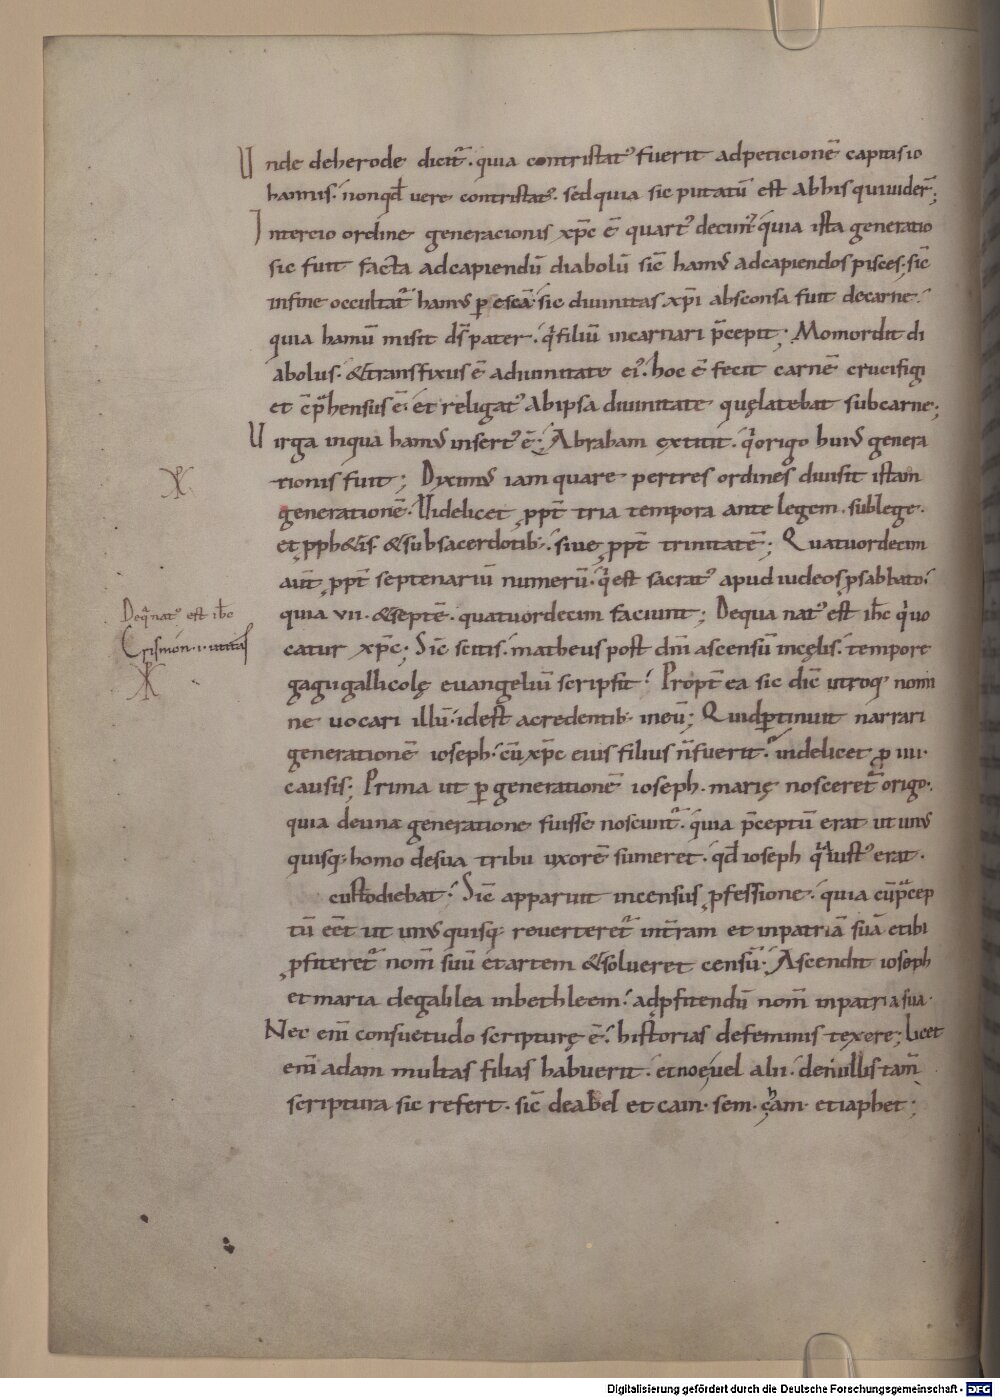 Unde deherode dicit᷒. quia contristat᷒ fuerit adpeticionē capitis io
hannis. nonqđ vere contristat᷒. sedquia sic putatū est abhis quiuiderᷓ;
Intercio ordine generacionis xp̄c ē quart᷒ decim᷒. quia ista generatio
sic fuit facta adcapiendū diabolū sic̄ ham᷒ adcapiendos pisces. sic̄
infine occultat᷒ ham᷒ p̱ escā. sic diuinitas xp̄i absconsa fuit decarne.
quia hamū misit d̄s pater. q͛ filiū incarnari p̄cepit; Momordit di
abolus. &transfixus ē adiuinitate ei᷒. hoc ē fecit carnē crucifigi
et cp̄hensus ē. et religat᷒ abipsa diuinitate quęlatebat subcarne;
Uirga inqua ham᷒ insert᷒ ē. Abraham extitit. q͛ origo hui᷒ genera
tionis fuit; Dixim᷒ iam quare pertres ordines diuisit istam
generationē. Uidelicet ꝓpt̄ tria tempora ante legem. sublege.
et ꝓph&is. &subsacerdotib;. siue ꝓpt̄ trinitatē; Quatuordecim
aūt ꝓpt̄ septenariū numerū. q͛ est sacrat᷒ apud iudeos ꝓsabbato.
quia vii. &septē. quatuordecim faciunt; Dequa nat᷒ est ih̄c q͛ uo
catur xp̄c; Sic̄ scitis. matheus post dn̄i ascensū incęlis. tempore
gagugallicolę euangeliū scripsit. Propt̄ ea sic dic̄ utroq; nomi
ne uocari illū. idest acredentib; ineū; Quidp̱tinuit narrari
generationē ioseph. cū xp̄c eius filius n̄ fuerit. uidelicet ꝓ iiii.
causis; Prima ut p̱ generationē ioseph. marię nosceret᷒ origo.
quia deuna generatione fuisse noscunt᷒. quia p̄ceptū erat ut un᷒
quisq; homo desua tribu uxorē sumeret. qđ ioseph q͛a iust᷒ erat.
custodiebat. Sic̄ apparuit incensus ꝓfessione. quia cū p̄cep
tū eēt ut un᷒ quisq; reverteret᷒ int̄ram et inpatriā suā et ibi
ꝓfiteret᷒ nom̄ suū et artem &solueret censū. Ascendit ioseph
et maria degalilea inbethleem. adꝓfitendū nom̄ inpatria sua.
Nec eni̅ consuetudo scripturę ē. historias defeminis texere; licet
eni̅ adam multas filias habuerit. et noe uel alii. denullis tam̄
scriptura sic refert. sic̄ deabel et cain. sem. cham. et iaphet;
Deq̄ nat᷒ est ih̄c
Crismon. i. utilitas